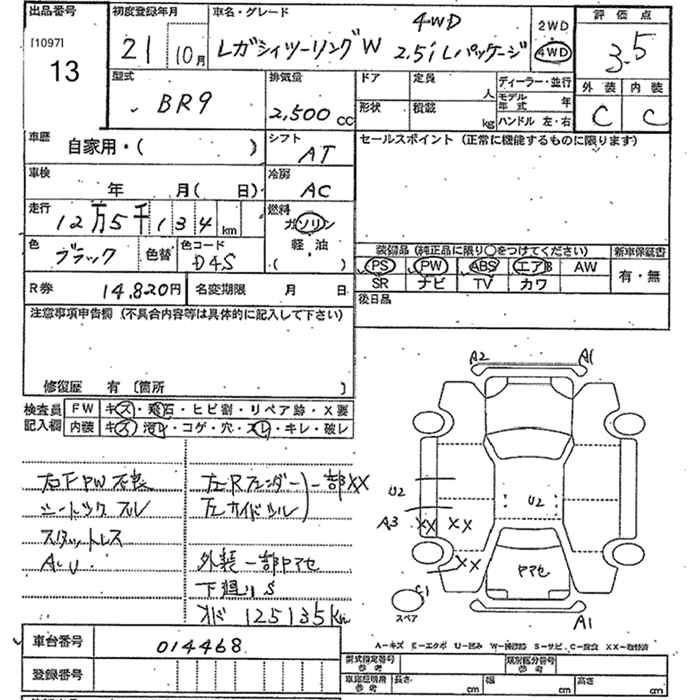 出品番号 初度登録年月 車名・グレード 評価点
[1097]
13
21 10月 レガシィツーリングW 4WD 2.5i Lパッケージ
2WD
4WD
3.5
型式 排気量 ドア 定員 人 ディーラー・並行 外装 内装
BR9 2,500cc
形状 積載 kg モデル年式 年
ハンドル 左・右
C C
車歴 自家用・( ) シフト AT
セールスポイント (正常に機能するものに限ります)
車検 年 月( 日) 冷房 AC
走行 12万5千134km 燃料 ガソリン
軽・油
( )
色 ブラック 色替 色コード D4S
装備品(純正品に限り○をつけてください) 新車保証書
PS PW ABS エアB AW 有・無
SR ナビ TV カワ
R券 14,820円 名変期限 月 日
後日品
注意事項申告欄(不具合内容等は具体的に記入して下さい)
修復歴 有 〔箇所 〕
検査員 FW キズ・飛石・ヒビ割・リペア跡・X要
記入欄 内装 キズ・汚レ・コゲ・穴・スレ・キレ・破レ
A2 A1
U2 U2
A3 XX XX
XX
ヤマセ
スペア
A1
シートツク スレ
スタットレス
外装一部ヤマセ
下廻りS
125135km
車台番号 014468
登録番号
A-キズ E-エクボ U-凹み S-サビ C-腐食
型式指定番号 参考 類別区分番号 参考
車庫証明用 参考 長さ cm 幅 cm 高さ cm